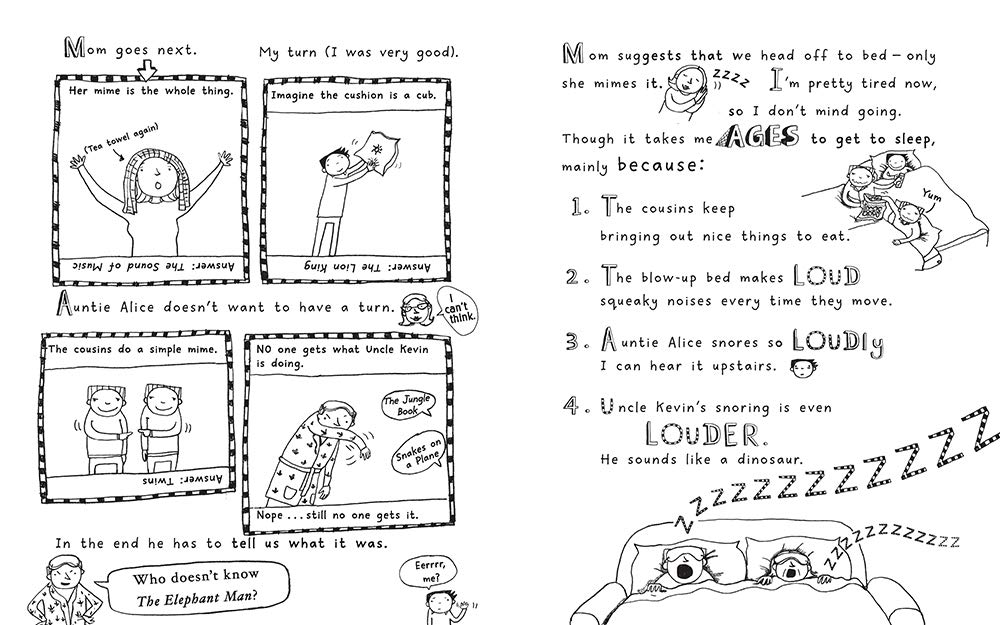 Mom goes next.
Her mime is the whole thing.
(Tea towel again)
Answer: The Sound of Music
My turn (I was very good).
Imagine the cushion is a cub.
Answer: The Lion King
Auntie Alice doesn't want to have a turn.
I
can't
think.
The cousins do a simple mime.
Answer: Twins
NO one gets what Uncle Kevin
is doing.
The Jungle
Book
Snakes on
a Plane
Nope ... still no one gets it.
In the end he has to tell us what it was.
Who doesn't know
The Elephant Man?
Eerrrr,
me?
Mom suggests that we head off to bed – only
she mimes it.
zzzz
I'm pretty tired now,
so I don't mind going.
Though it takes me AGES to get to sleep,
mainly because:
Yum
1. The cousins keep
bringing out nice things to eat.
2. The blow-up bed makes LOUD
squeaky noises every time they move.
3. Auntie Alice snores so LOUDly
I can hear it upstairs.
4. Uncle Kevin's snoring is even
LOUDER.
He sounds like a dinosaur.
ZZZZZZZZZZZZZZ
ZZZZZZZZZZZZZ